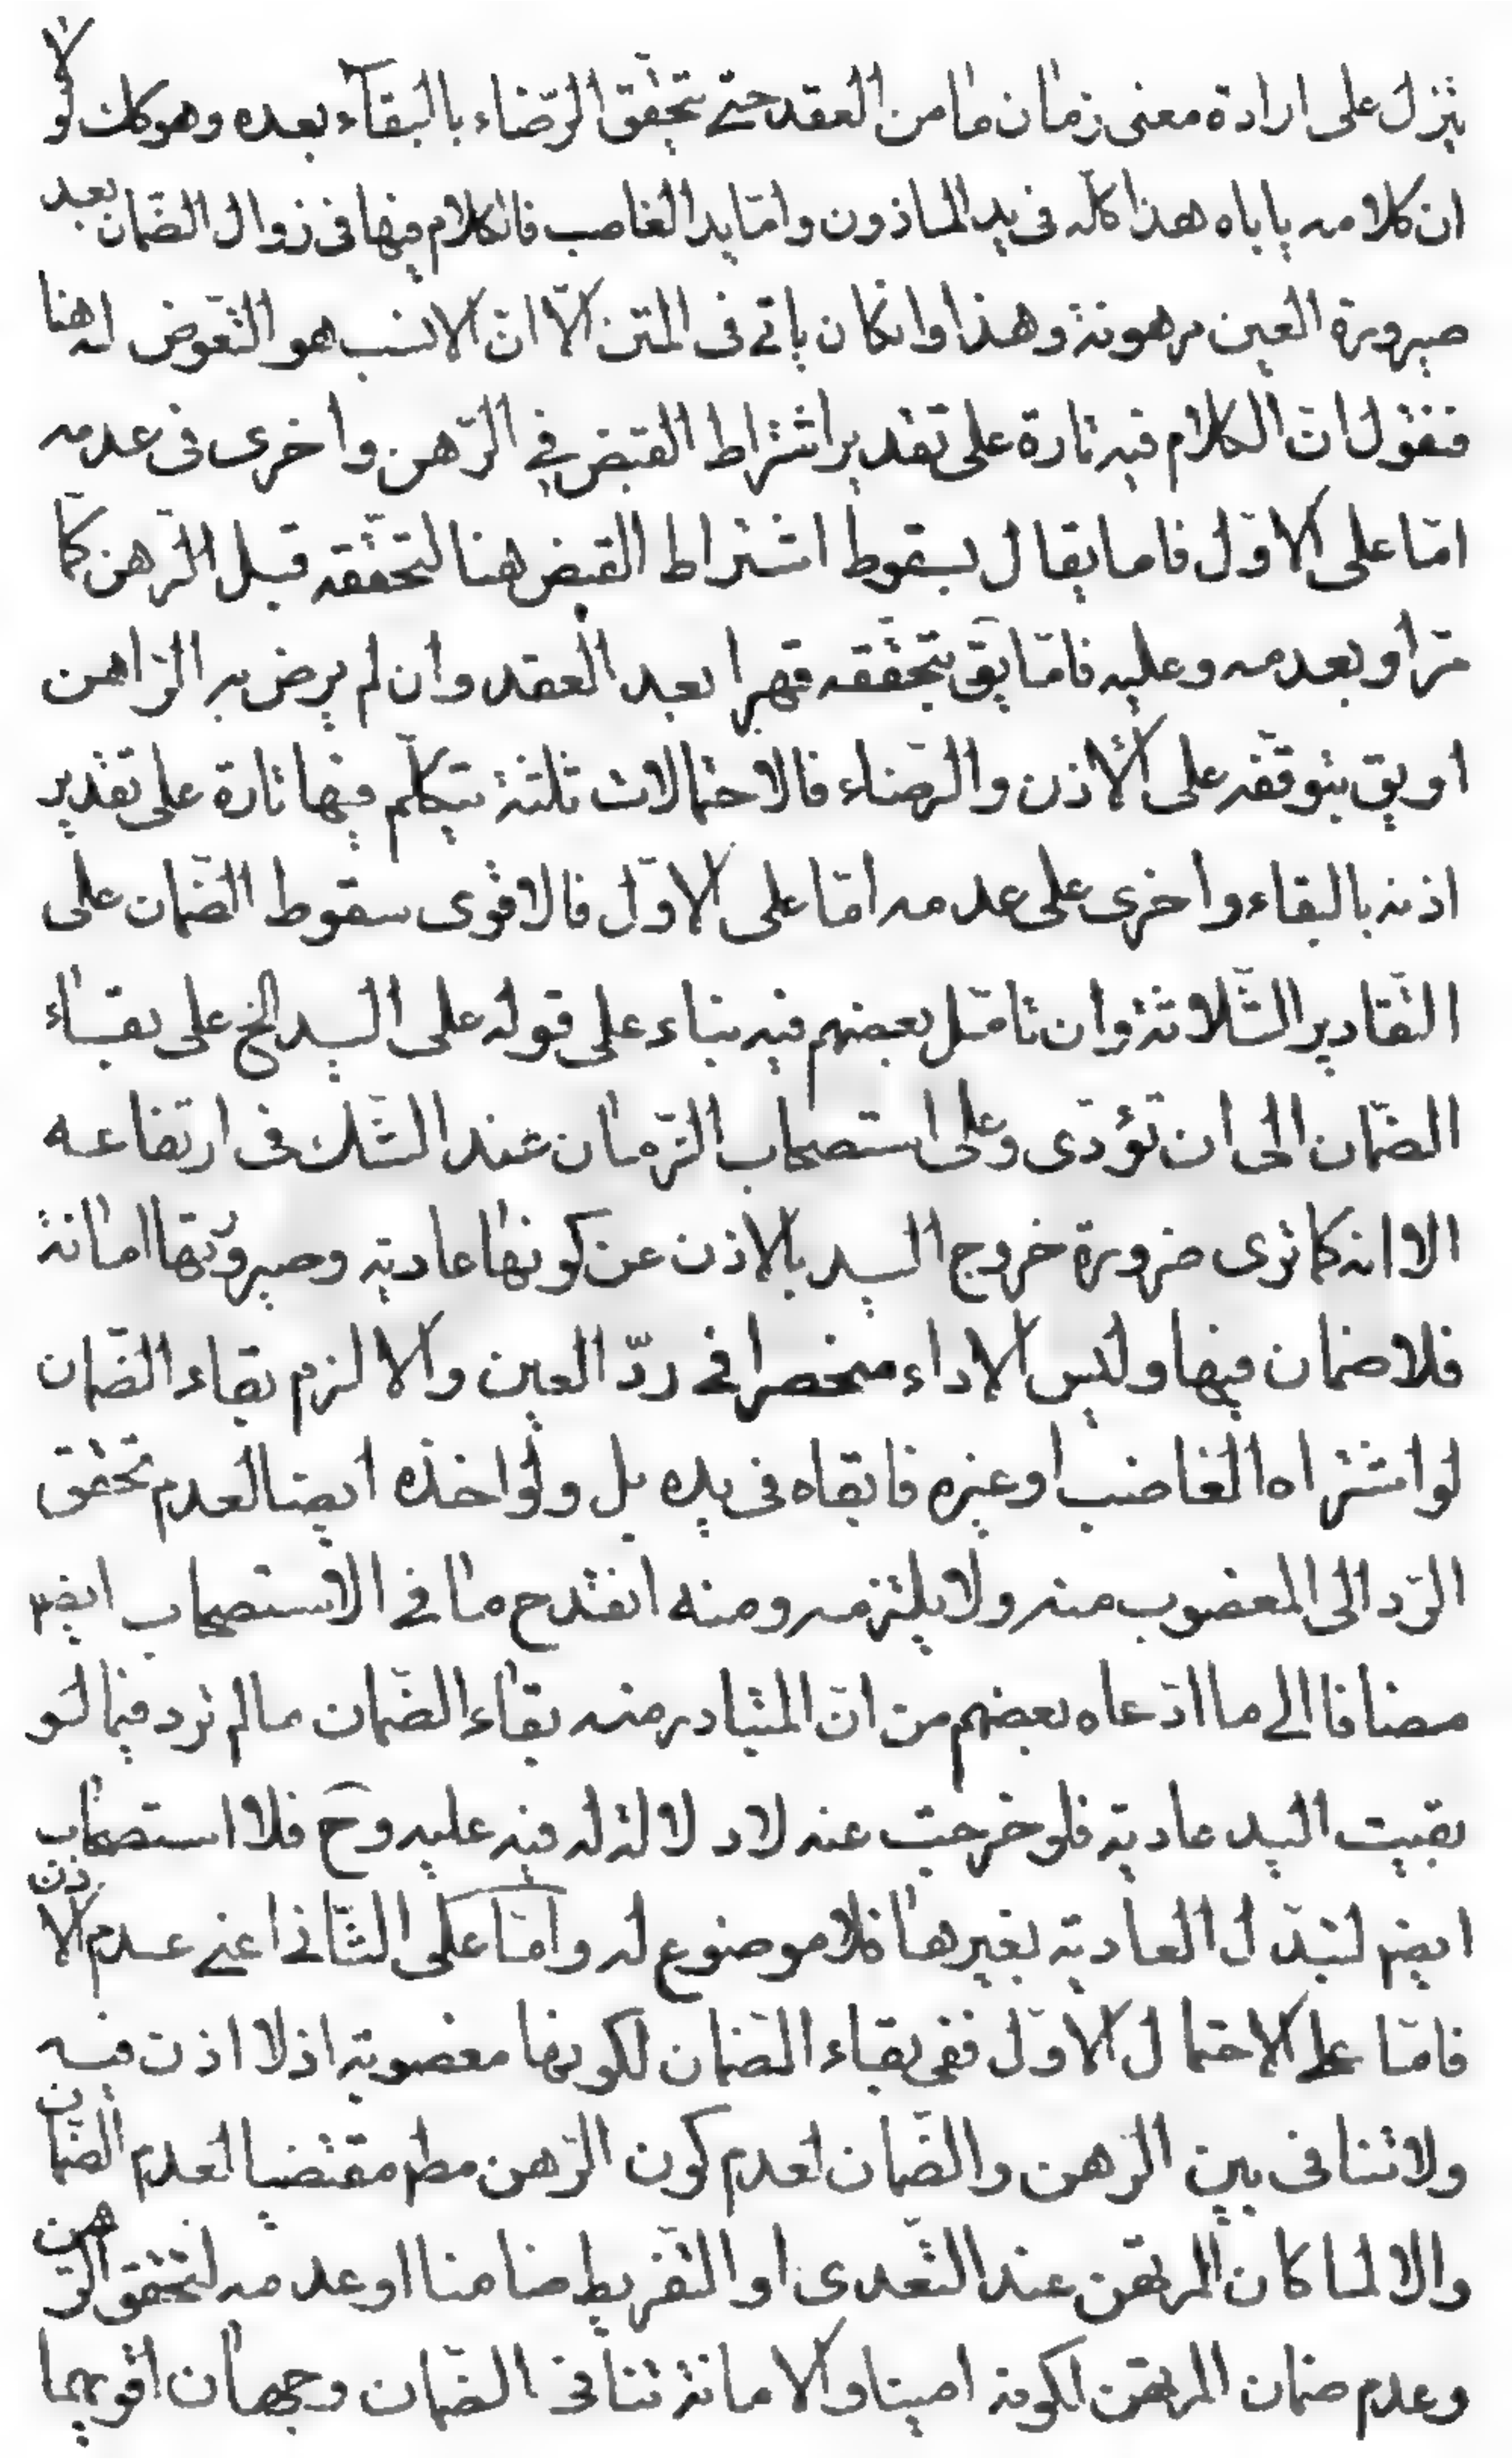 ينزل على ارادة معنى زمان ما من العقد حتى تحقق الرّضاء بالبقاء بعده وهو كك لو لا
ان كلامه ياباه هذا كلّه فى يد الماذون وامّا يد الغاصب فالكلام فيها فى زوال الضّمان بعد
صيرورة العين مرهونة وهذا وانكان ياتى فى المتن الّا انّ الانسب هو التّعرض له هنا
فنقول انّ الكلام فيه تارة على تقدير اشتراط القبض فى الرّهن واخرى فى عدمه
امّا على الاوّل فاما يقال بسقوط اشتراط القبض هنا لتحقّقه قبل الرّهن كما
مرّ او بعدمه وعليه فامّا يق بتحقّقه قهرا بعد العقد وان لم يرض به الرّاهن
او يق بتوقّفه على الأذن والرضاء فالاحتمالات ثلثة نتكلّم فيها تارة على تقدير
اذنه بالبقاء واخرى على عدمه امّا على الاوّل فالاقوى سقوط الضّمان على
التّقادير الثّلاثة وان تامّل بعضهم فيه بناء على قوله على اليد الخ على بقاء
الضّمان الى ان تؤدّى وعلى استصحاب الزّمان عند الشّك فى ارتفاعه
الا انه كما ترى ضرورة خروج اليد بالاذن عن كونها عادية وصيرورتها امانة
فلا ضمان فيها وليس الاداء منحصرا فى ردّ العين والا لزم بقاء الضّمان
لو اشتراه الغاصب او غيره فابقاه فى يده بل ولو اخذه ايضا لعدم تحقق
الرّد الى المغصوب منه ولا يلتزمه ومنه انقدح ما فى الاستصحاب ايضم
مضافا الى ما ادّعاه بعضهم من انّ المتبادر منه بقاء الضّمان ما لم ترد فيما لو
بقيت اليد عادية فلو خرجت عنه لا دلالة له فيه عليه وح فلا استصحاب
ايضم لتبدّل العادية بغيرها فلا موضوع له وامّا على الثّانى اعنى عدم الاذن
فامّا على الاحتمال الاوّل ففى بقاء الضّمان لكونها مغصوبة اذ لا اذن فيه
ولا تنافى بين الرّهن والضّمان لعدم كون الرّهن مطم مقتضيا لعدم الضّمان
والا لما كان المرتهن عند التّعدى او التّفريط ضامنا او عدمه لتحقق الرّهن
وعدم ضمان المرتهن لكونه امينا والامانة تنافى الضّمان وجهان اقويهما